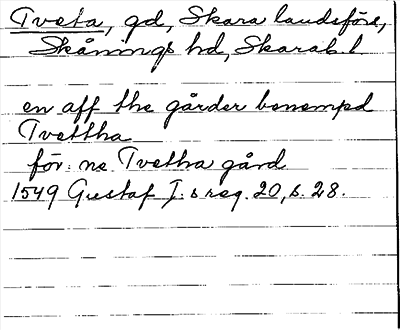 Tveta, gd, Skara landsförs,
Skånings hd, Skarab. l
en aff the gårder benempd
Tvettha
för: ne Tvetha gård
1549 Gustaf I:s reg. 20, s. 28.